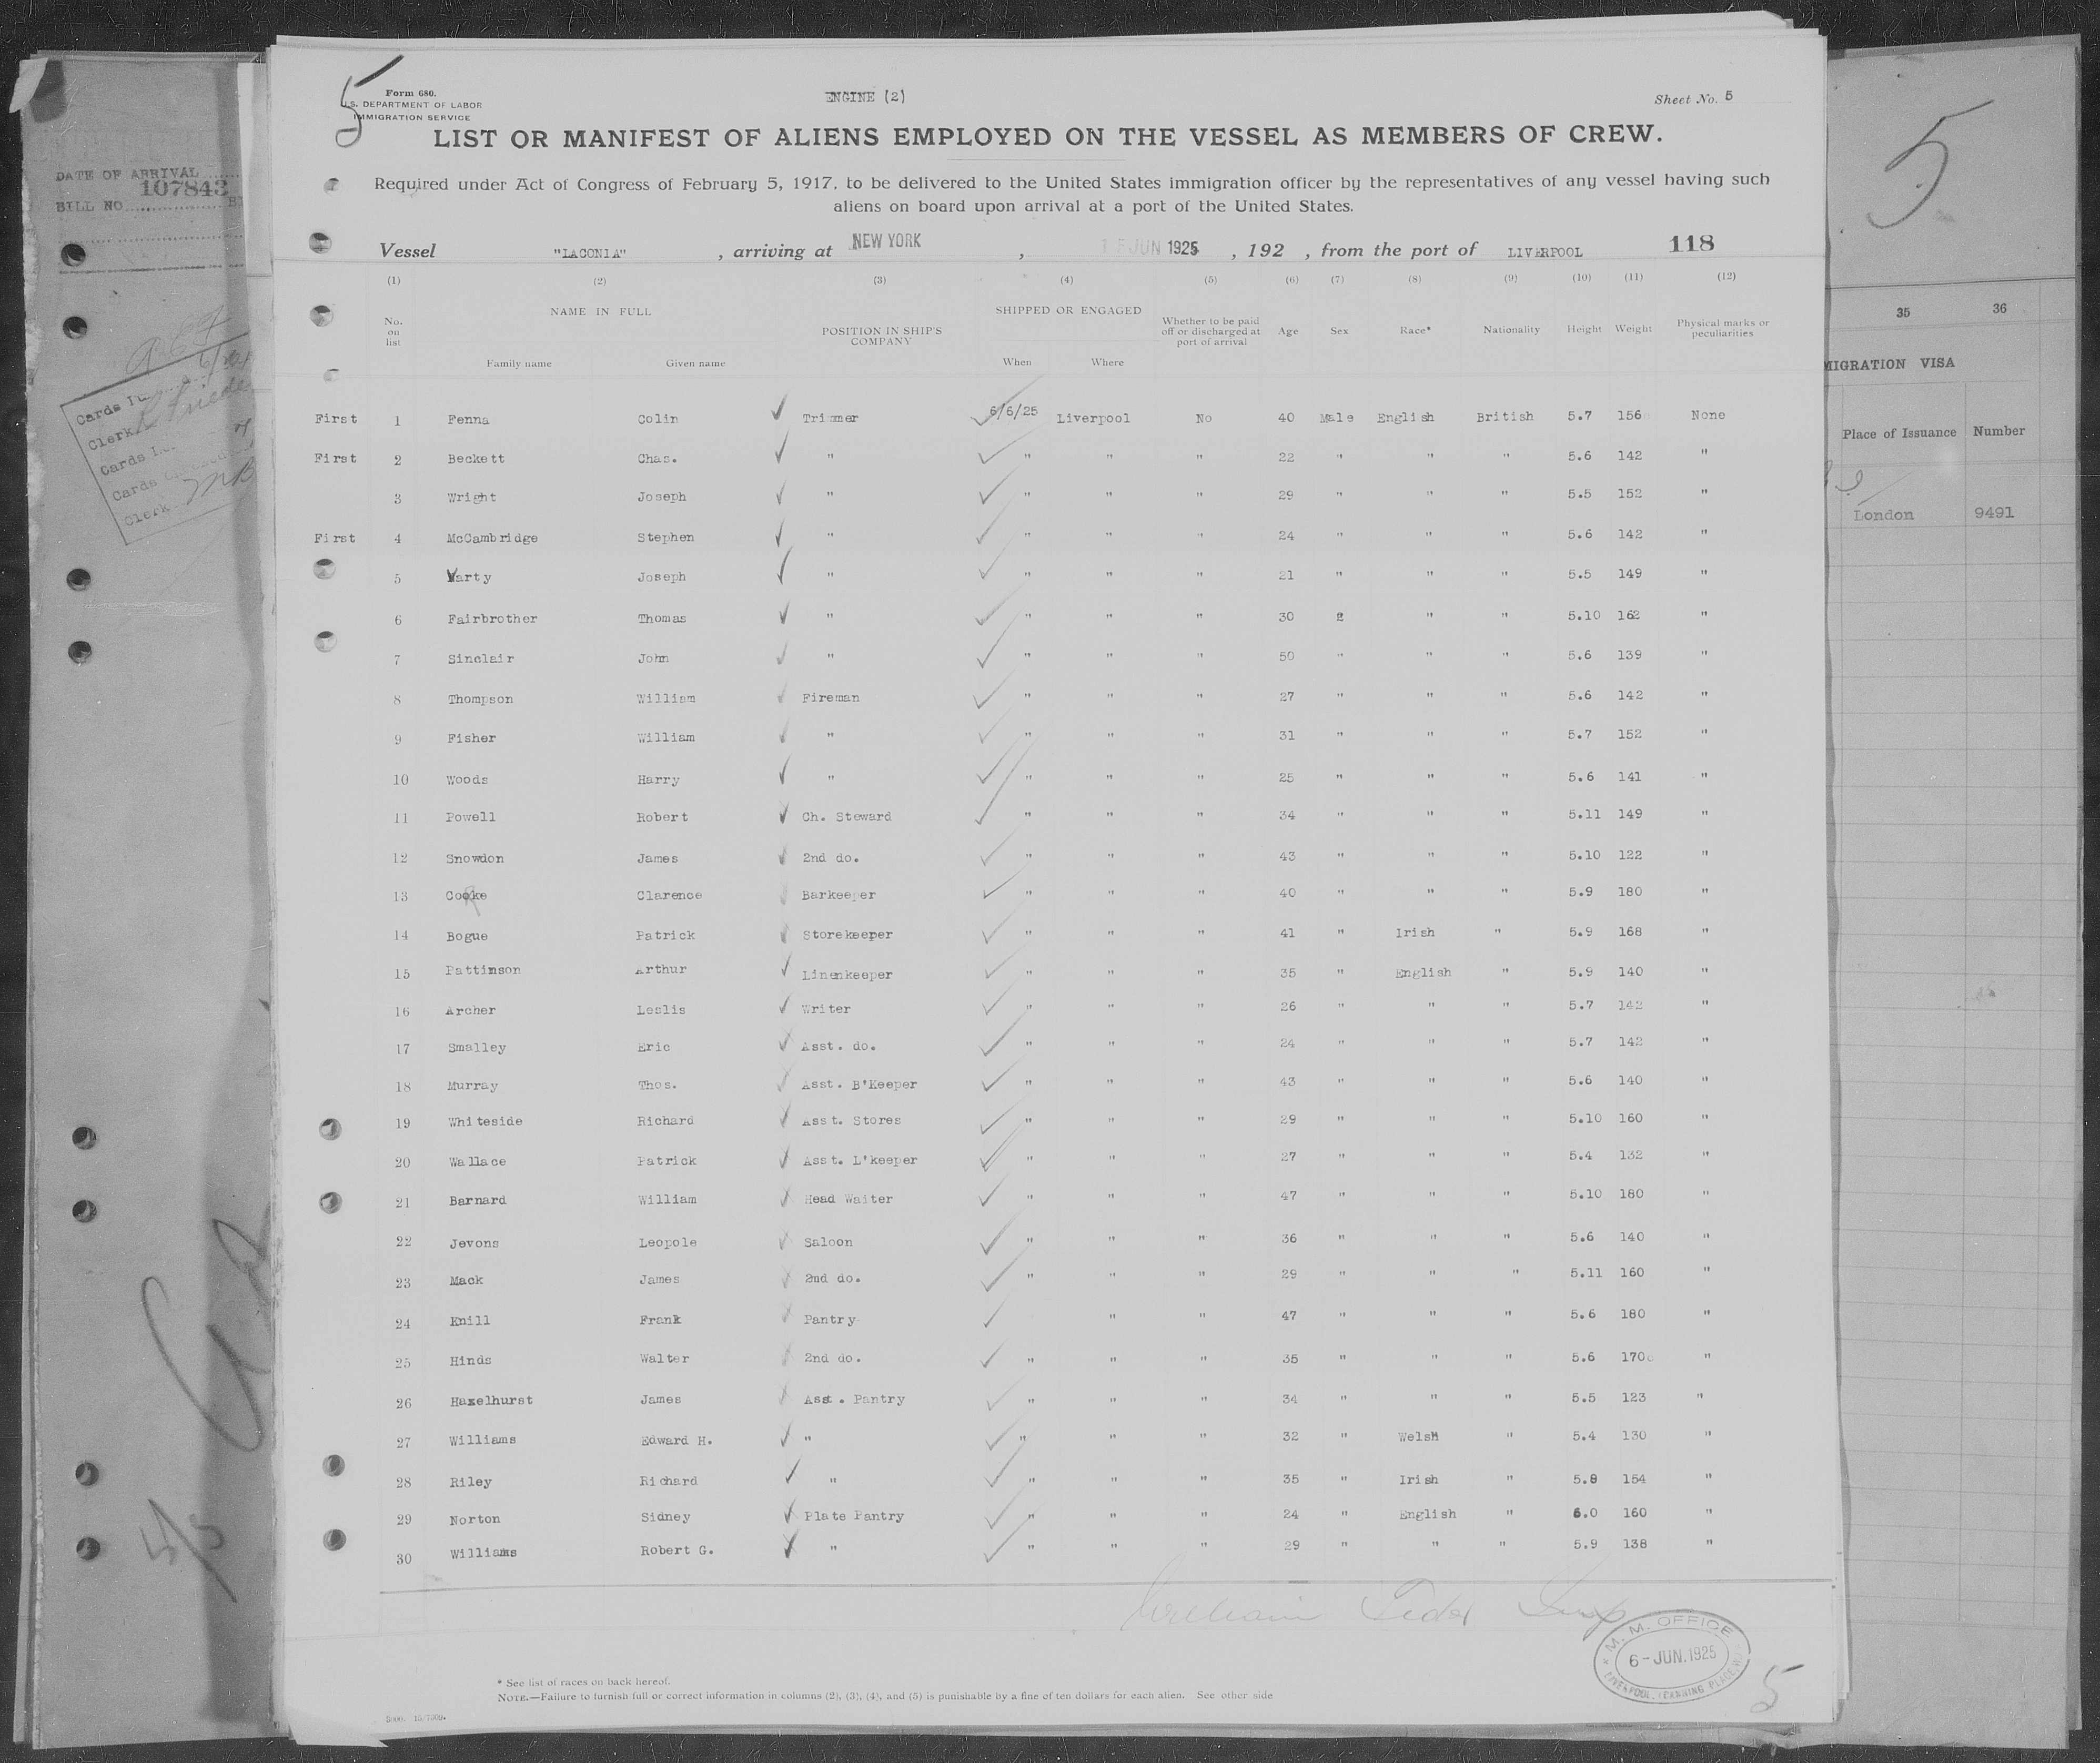 5
Form 680.
U.S. DEPARTMENT OF LABOR
IMMIGRATION SERVICE
ENGINE (2)
Sheet No. 5
LIST OR MANIFEST OF ALIENS EMPLOYED ON THE VESSEL AS MEMBERS OF CREW.
Required under Act of Congress of February 5, 1917, to be delivered to the United States immigration officer by the representatives of any vessel having such
aliens on board upon arrival at a port of the United States.
Vessel "LACONIA" , arriving at NEW YORK , JUN 1925 , 192 , from the port of LIVERPOOL 118
(1) (2) (3) (4) (5) (6) (7) (8) (9) (10) (11) (12)
No. on list NAME IN FULL Family name Given name POSITION IN SHIP'S COMPANY SHIPPED OR ENGAGED When Where Whether to be paid off or discharged at port of arrival Age Sex Race* Nationality Height Weight Physical marks or peculiarities
First 1 Fenna Colin Trimmer 6/6/25 Liverpool No 40 Male English British 5.7 156 None
First 2 Beckett Chas. " " " " 22 " " " 5.6 142 "
3 Wright Joseph " " " " 29 " " " 5.5 152 "
First 4 McCambridge Stephen " " " " 24 " " " 5.6 142 "
5 Varty Joseph " " " " 21 " " " 5.5 149 "
6 Fairbrother Thomas " " " " 30 " " " 5.10 162 "
7 Sinclair John " " " " 50 " " " 5.6 139 "
8 Thompson William Fireman " " " 27 " " " 5.6 142 "
9 Fisher William " " " " 31 " " " 5.7 152 "
10 Woods Harry " " " " 25 " " " 5.6 141 "
11 Powell Robert Ch. Steward " " " 34 " " " 5.11 149 "
12 Snowdon James 2nd do. " " " 43 " " " 5.10 122 "
13 Cooke Clarence Barkeeper " " " 40 " " " 5.9 180 "
14 Bogue Patrick Storekeeper " " " 41 " Irish " 5.9 168 "
15 Pattinson Arthur Linenkeeper " " " 35 " English " 5.9 140 "
16 Archer Leslis Writer " " " 26 " " " 5.7 142 "
17 Smalley Eric Asst. do. " " " 24 " " " 5.7 142 "
18 Murray Thos. Asst. B'Keeper " " " 43 " " " 5.6 140 "
19 Whiteside Richard Asst. Stores " " " 29 " " " 5.10 160 "
20 Wallace Patrick Asst. L'keeper " " " 27 " " " 5.4 132 "
21 Barnard William Head Waiter " " " 47 " " " 5.10 180 "
22 Jevons Leopole Saloon " " " 36 " " " 5.6 140 "
23 Mack James 2nd do. " " " 29 " " " 5.11 160 "
24 Knill Frank Pantry " " 47 " " " 5.6 180 "
25 Hinds Walter 2nd do. " " " 35 " " " 5.6 170 "
26 Hazelhurst James Asst. Pantry " " " 34 " " " 5.5 123 "
27 Williams Edward H. " " " " 32 " Welsh " 5.4 130 "
28 Riley Richard " " " " 35 " Irish " 5.8 154 "
29 Norton Sidney Plate Pantry " " " 24 " English " 6.0 160 "
30 Williams Robert G. " " " " 29 " " " 5.9 138 "
William
M. M. OFFICE
6 - JUN. 1925
LIVERPOOL, CANNING PLACE
5
* See list of races on back hereof.
NOTE.—Failure to furnish full or correct information in columns (2), (3), (4), and (5) is punishable by a fine of ten dollars for each alien. See other side
DATE OF ARRIVAL
107843
BILL NO
Cards
Clerk
Cards
Cards
Clerk
5
35 36
MIGRATION VISA
Place of Issuance Number
London 9491